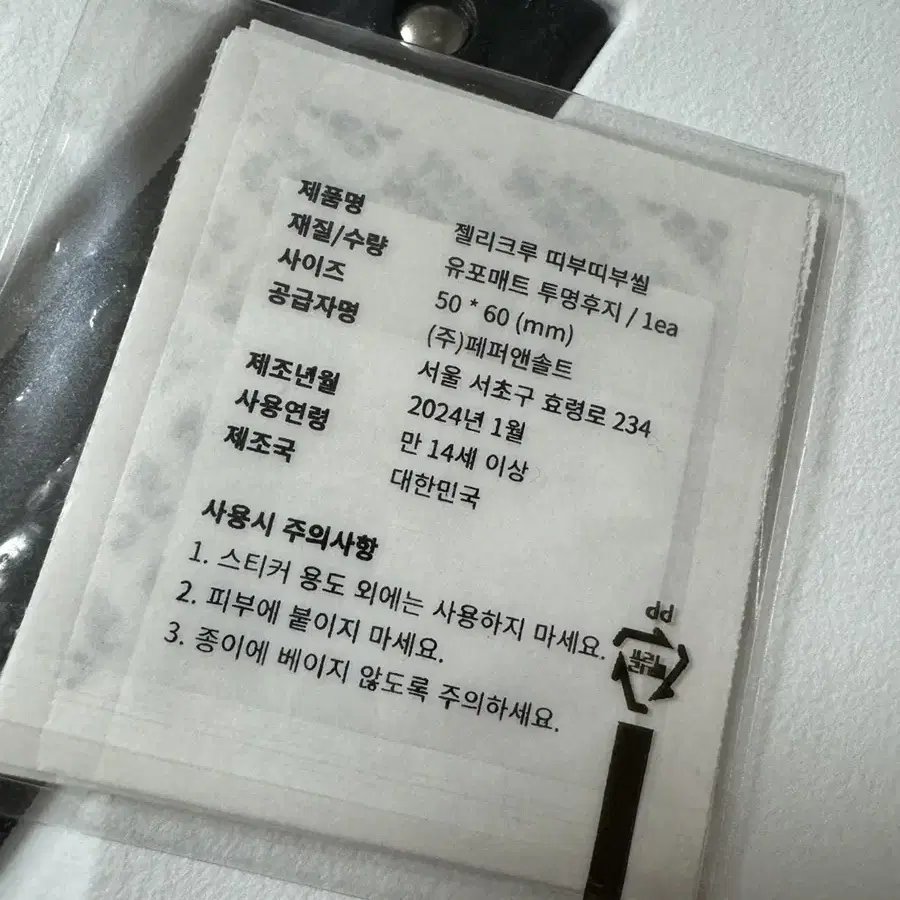 제품명 젤리크루 띠부띠부씰
재질/수량 유포매트 투명후지 / 1ea
사이즈 50 * 60 (mm)
공급자명 (주)페퍼앤솔트
서울 서초구 효령로 234
제조년월 2024년 1월
사용연령 만 14세 이상
제조국 대한민국
사용시 주의사항
1. 스티커 용도 외에는 사용하지 마세요.
2. 피부에 붙이지 마세요.
3. 종이에 베이지 않도록 주의하세요.
PP
비닐류